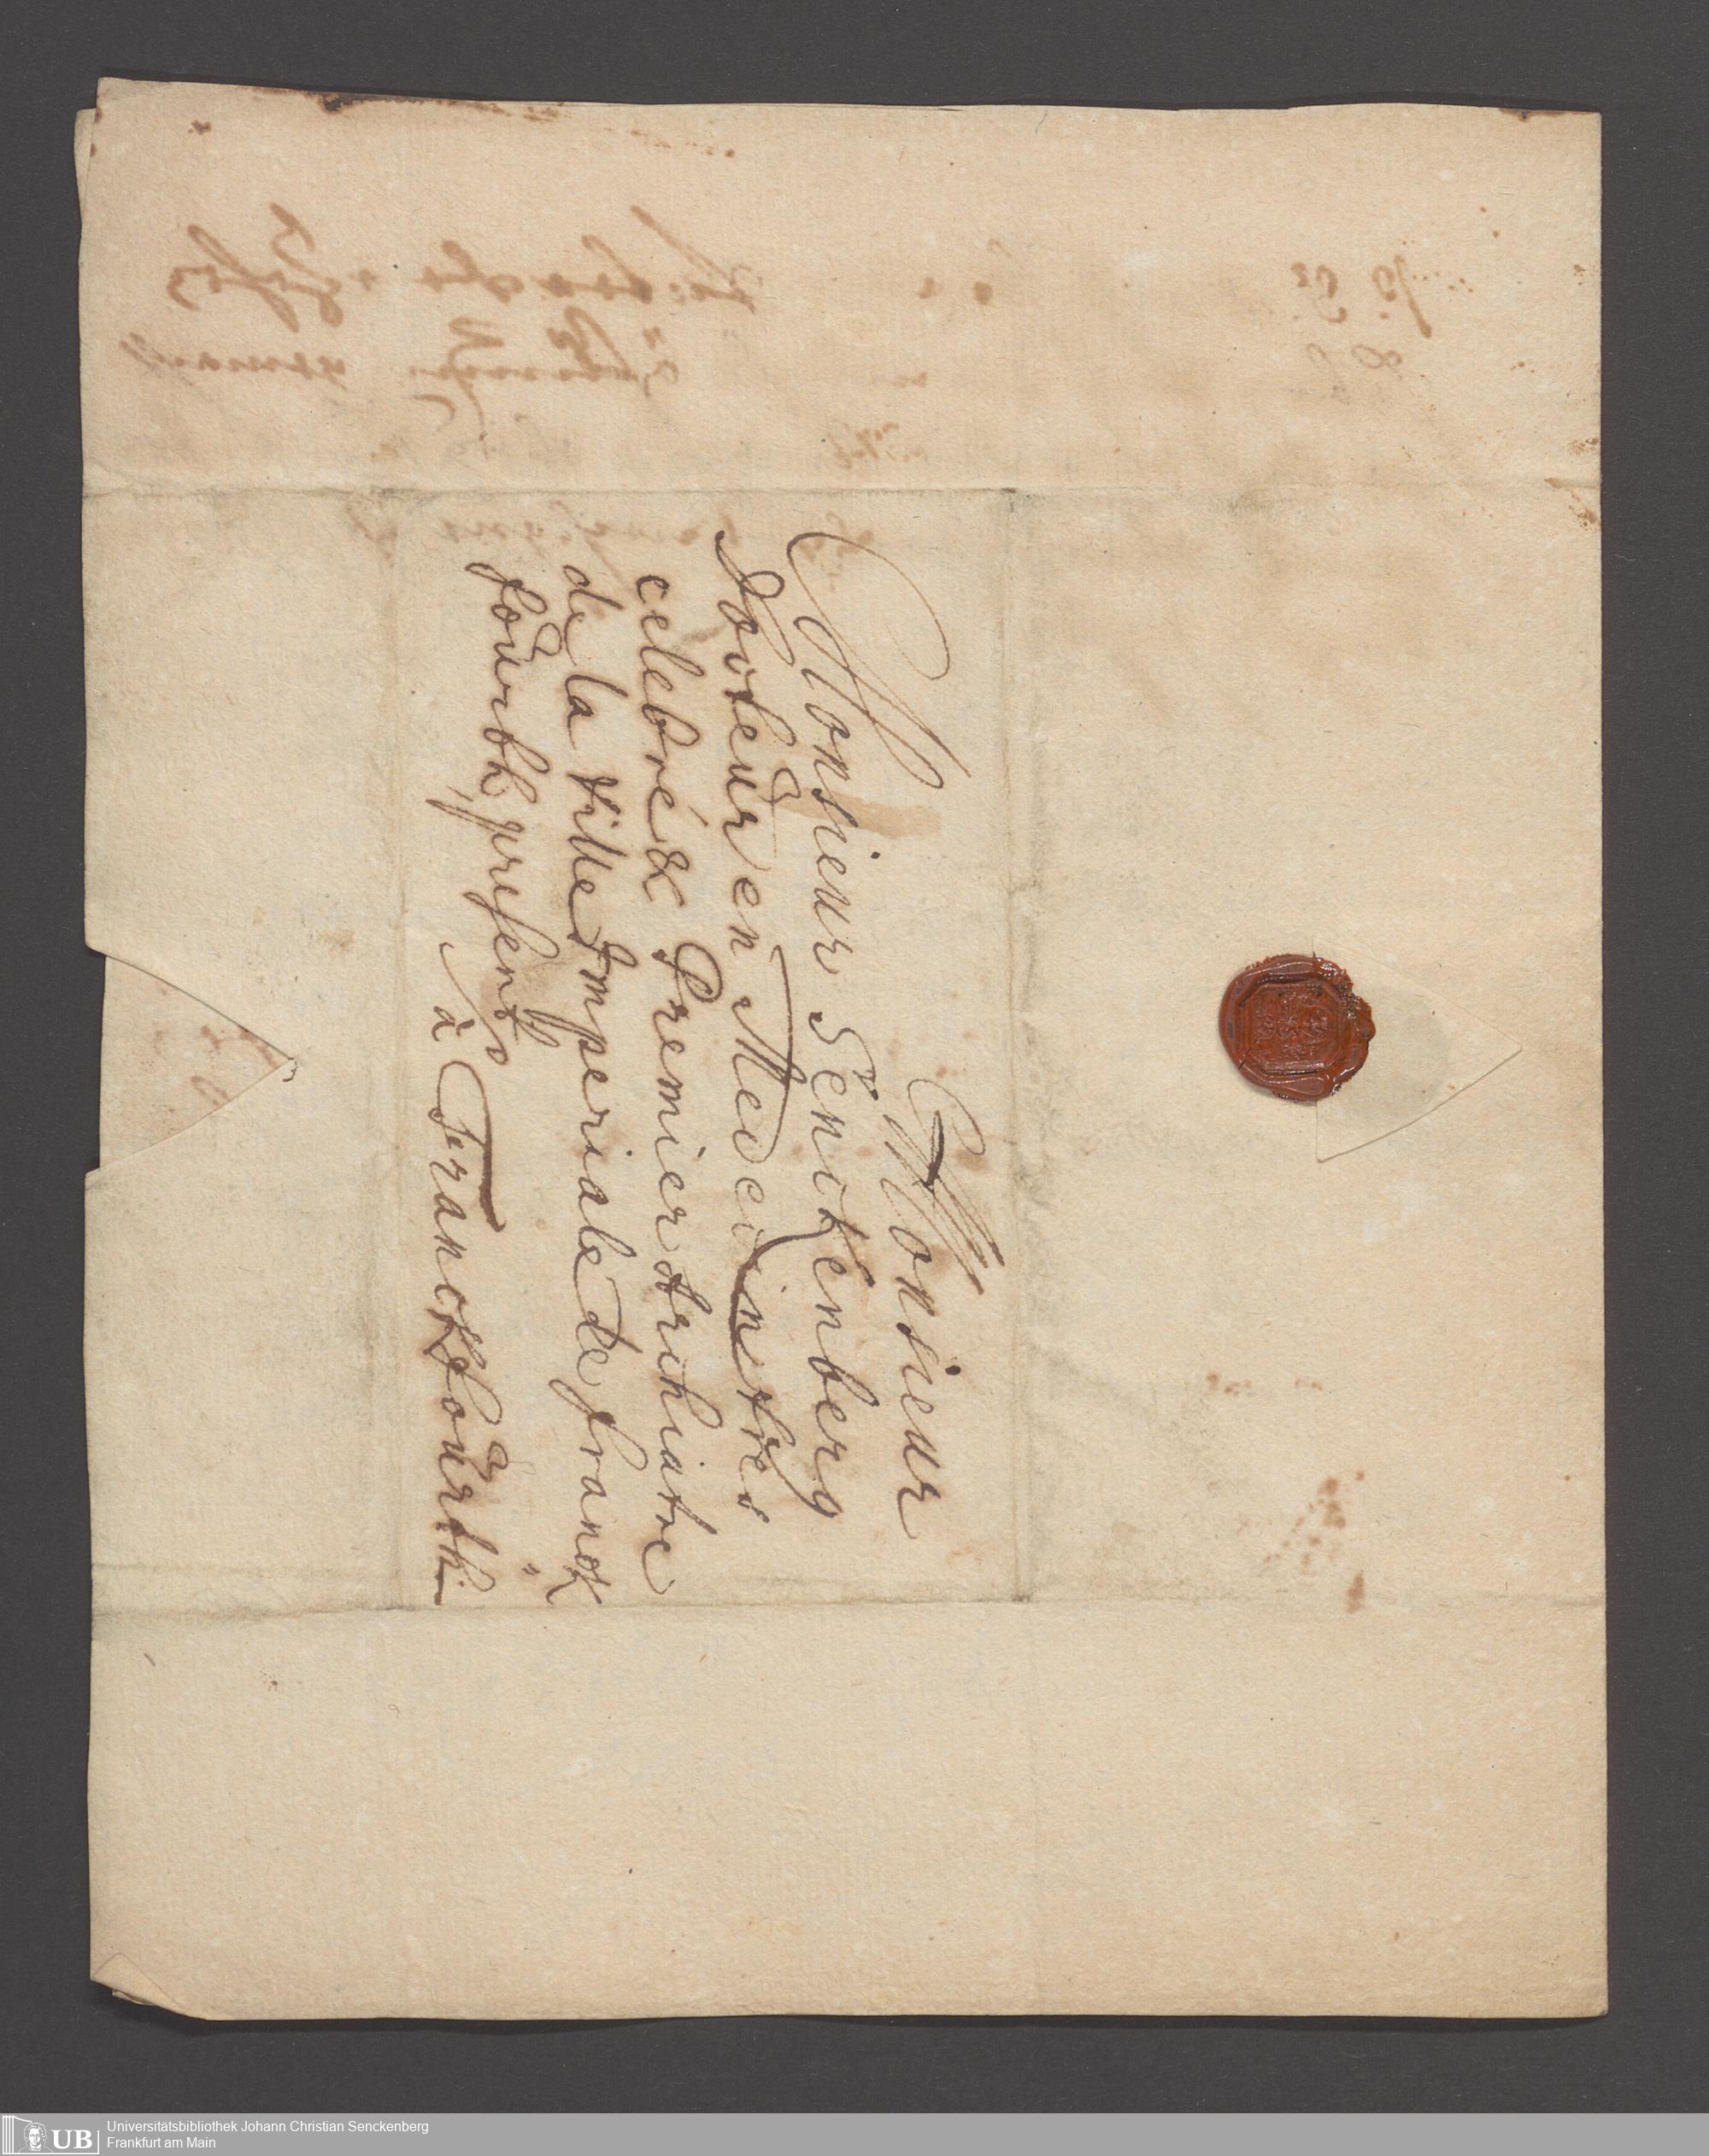 Monsieur
Monsieur Senckenberg
Docteur en Medecin tres
celebré & Premier Archiatre
de la Ville Imperiale de franck„
fourth, present
à Franckfourth.
UB
Universitätsbibliothek Johann Christian Senckenberg
Frankfurt am Main